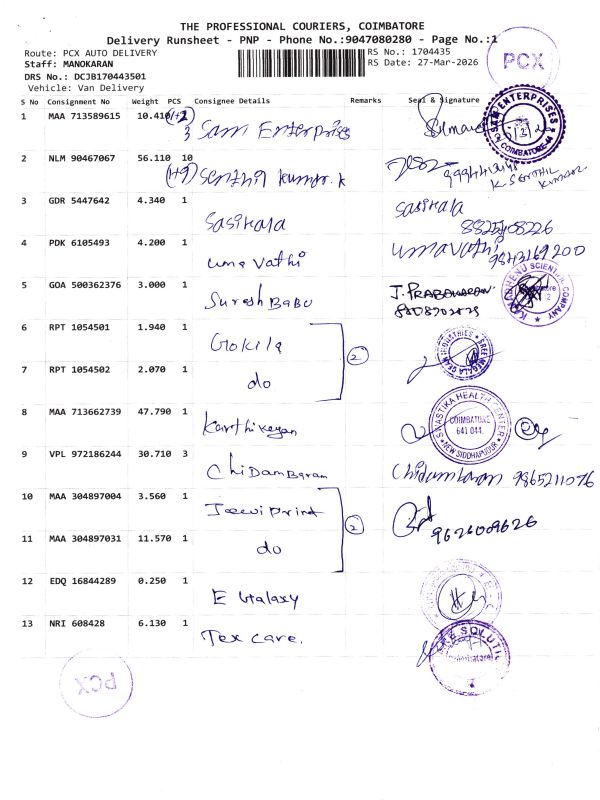 THE PROFESSIONAL COURIERS, COIMBATORE
Delivery Runsheet - PNP - Phone No.:9047080280 - Page No.:1
Route: PCX AUTO DELIVERY RS No.: 1704435
Staff: MANOKARAN RS Date: 27-Mar-2026
DRS No.: DCJB170443501
Vehicle: Van Delivery
PCX
S No Consignment No Weight PCS Consignee Details Remarks Seal & Signature
1 MAA 713589615 10.410
3 Sam Enterprises
SAM ENTERPRISES COIMBATORE
2 NLM 90467067 56.110 10
(1+9) Senthil Kumar.K
K SENTHIL KUMAR
3 GDR 5447642 4.340 1
Sasikala Sasikala
4 PDK 6105493 4.200 1
Uma Vathi Umavathi
5 GOA 500362376 3.000 1
Suresh Babu
SCIENTIFIC COMPANY
6 RPT 1054501 1.940 1
Gokila 2
INDUSTRIES
7 RPT 1054502 2.070 1
do
8 MAA 713662739 47.790 1
Karthikeyan
SWASTIKA HEALTH CENTER COIMBATORE 641 044. NEW SIDDHAPUDUR
9 VPL 972186244 30.710 3
Chidambaram Chidambaram 9865211076
10 MAA 304897004 3.560 1
2 9626009626
11 MAA 304897031 11.570 1
do
12 EDQ 16844289 0.250 1
E Galaxy
13 NRI 608428 6.130 1
Tex Care.
PCX